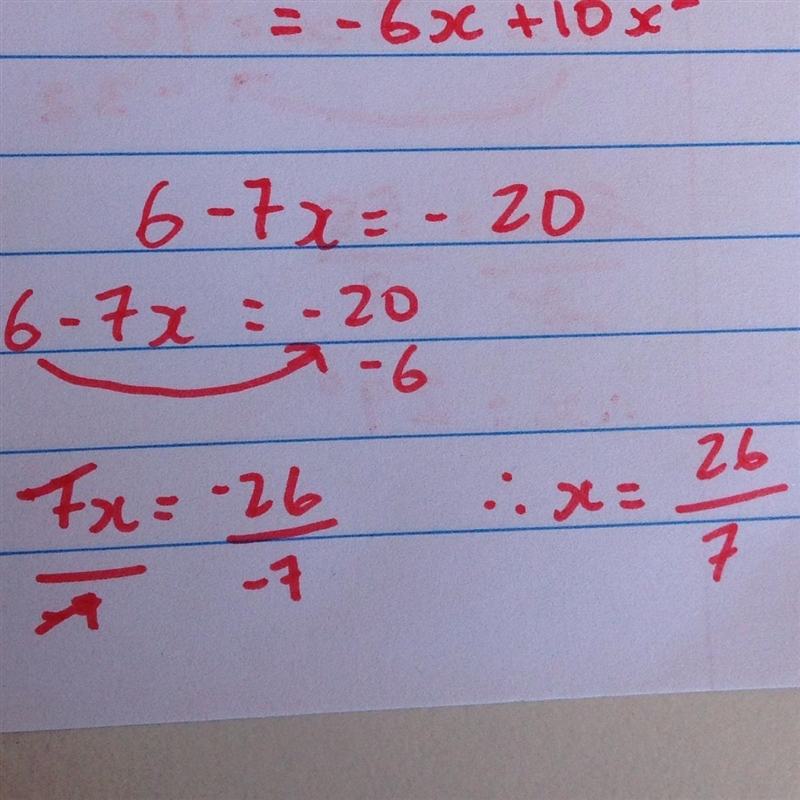 = -6x + 10x²
6 - 7x = - 20
6 - 7x = - 20
- 6
-7x = -26 ∴ x = 26
-7 -7 7